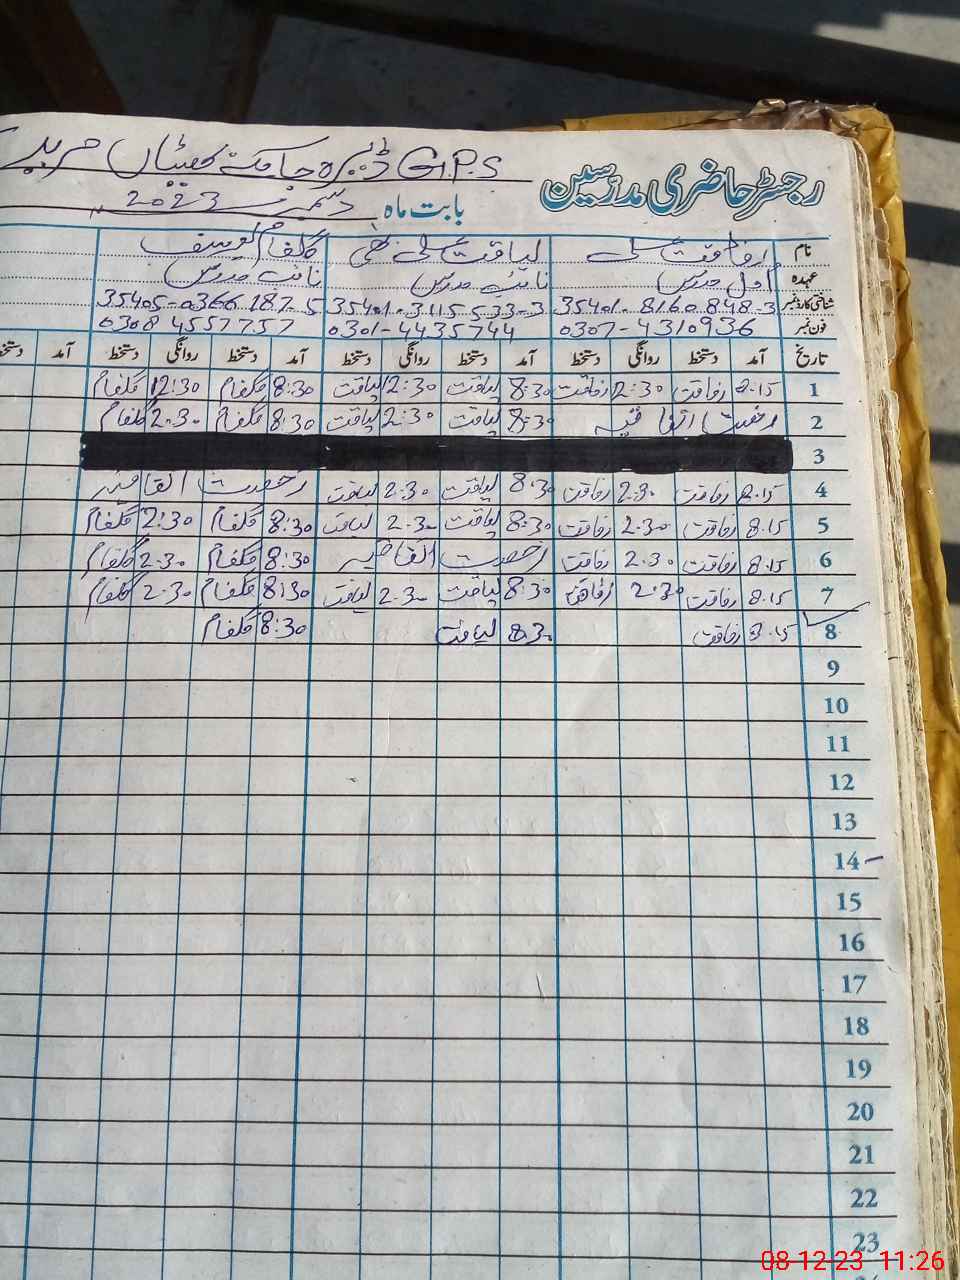 G.P.S ڈیرہ چاکنہ بھٹیاں مرید
رجسٹر حاضری مدرسین
بابت ماہ دسمبر 2023
نام رفاقت علی لیاقت علی گلفام یوسف
عہدہ اول مدرس نائب مدرس نائب مدرس
شناختی کارڈ نمبر 35401-8160848-3 35401-3115533-3 35405-0366187-5
فون نمبر 0307-4310936 0301-4435744 0308 4557757
تاریخ آمد دستخط روانگی دستخط آمد دستخط روانگی دستخط آمد دستخط روانگی دستخط آمد دستخط
1 8.15 رفاقت 2:30 رفاقت 8:30 لیاقت 2:30 لیاقت 8:30 گلفام 12:30 گلفام
2 رخصت اتفاقیہ 8:30 لیاقت 2:30 لیاقت 8:30 گلفام 2.30 گلفام
3
4 8.15 رفاقت 2.30 رفاقت 8:30 لیاقت 2:30 لیاقت رخصت اتفاقیہ
5 8.15 رفاقت 2.30 رفاقت 8:30 لیاقت 2.30 لیاقت 8:30 گلفام 2:30 گلفام
6 8.15 رفاقت 2.30 رفاقت رخصت اتفاقیہ 8:30 گلفام 2.30 گلفام
7 8.15 رفاقت 2.30 رفاقت 8:30 لیاقت 2.30 لیاقت 8:30 گلفام 2.30 گلفام
8 8.15 رفاقت 8:30 لیاقت 8:30 گلفام
9
10
11
12
13
14
15
16
17
18
19
20
21
22
23
08-12-23 11:26